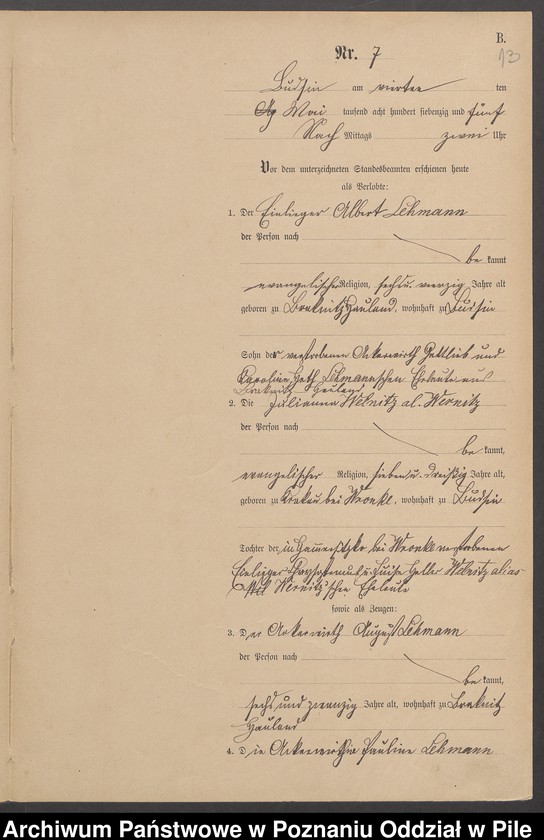 B.
13
Nr. 7
Budsin am vierten ten
Mai tausend acht hundert siebenzig und fünf
Nach Mittags zwei Uhr
Vor dem unterzeichneten Standesbeamten erschienen heute
als Verlobte:
1. Der Einlieger Albert Lehmann
der Person nach
be kannt
evangelischer Religion, sechs u. vierzig Jahre alt
geboren zu Hauland, wohnhaft zu Budsin
Sohn der verstorbenen Ackerwirth Gottlieb und
Karoline Lehmannschen Eheleute aus
Hauland
2. Die Julianna Welnitz al. Wernitz
der Person nach
be kannt,
evangelischer Religion, sieben u. dreißig Jahre alt,
geboren zu bei Wronke, wohnhaft zu Budsin
Tochter der in bei Wronke verstorbenen
Einlieger u. Luise Welnitz alias
Wernitz'schen Eheleute
sowie als Zeugen:
3. Der Ackerwirth August Lehmann
der Person nach
be kannt,
sechs und zwanzig Jahre alt, wohnhaft zu
Hauland
4. Die Ackerwirthin Pauline Lehmann
Archiwum Państwowe w Poznaniu Oddział w Pile